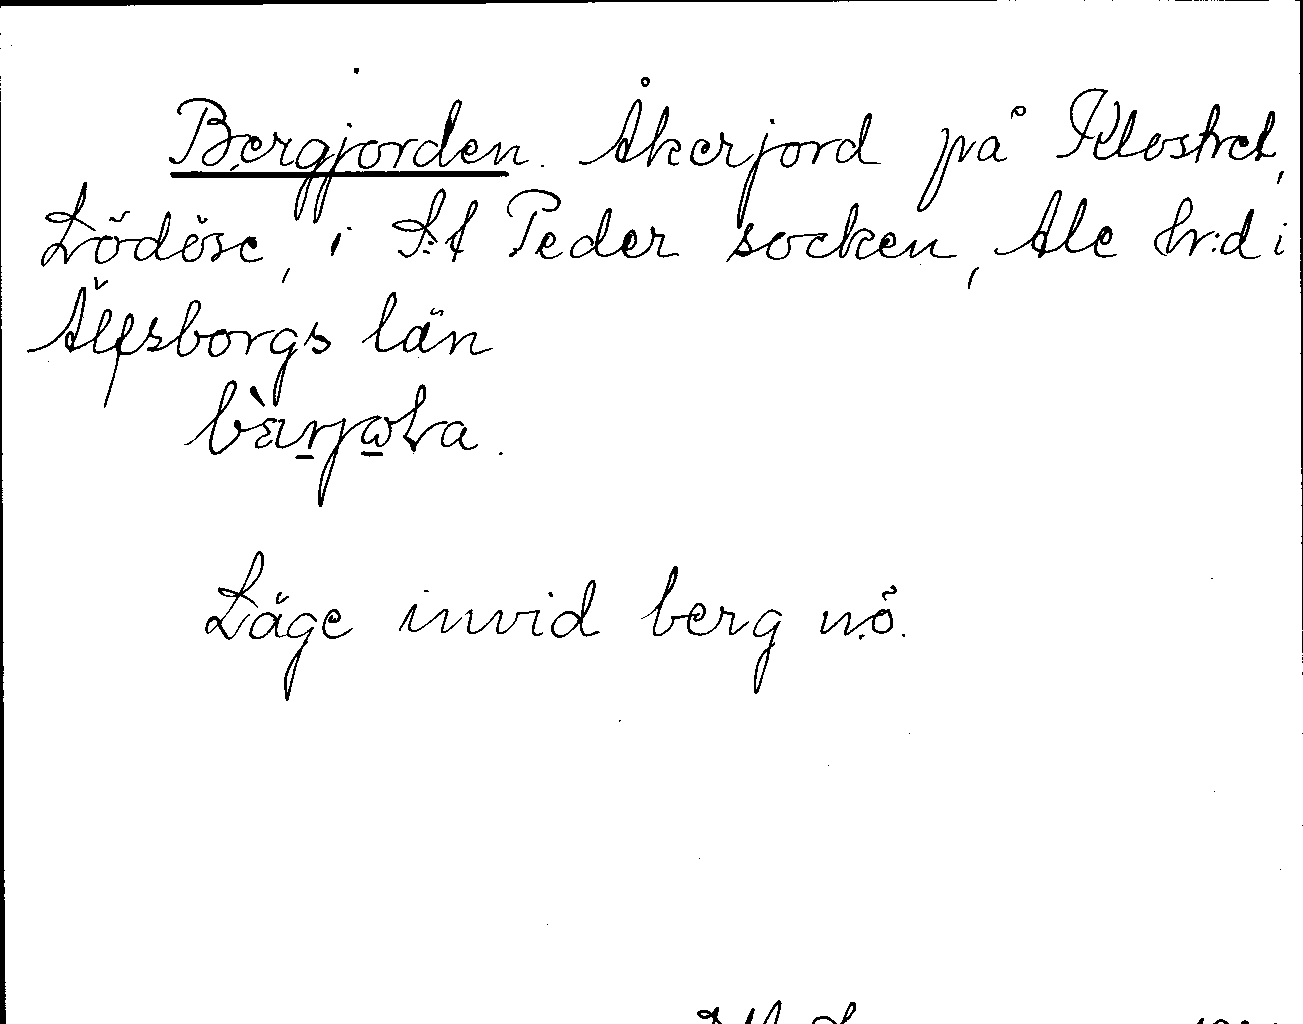 Bergjorden. Åkerjord på Klostret,
Lödöse, i S:t Peder socken, Ale hr:d i
Älfsborgs län

Läge invid berg n.ö.